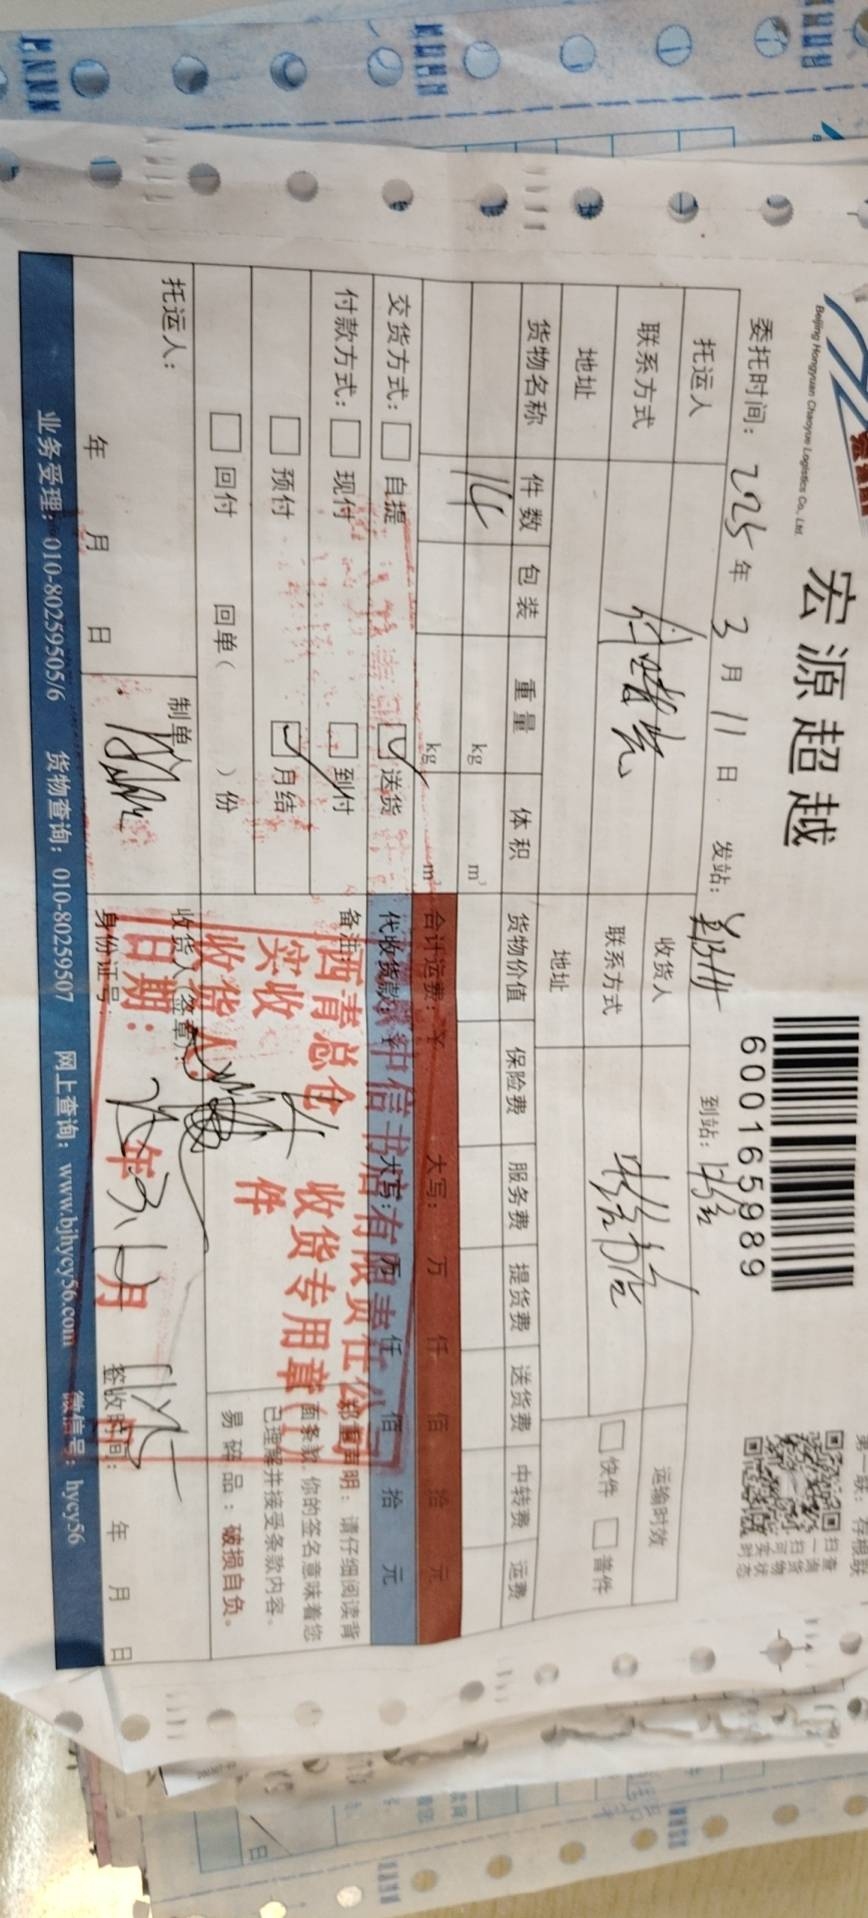 宏源超越
Beijing Hongyuan Chaoyue Logistics Co., Ltd.
600165989
第一联：存根联
扫一扫可查询货物实时状态
委托时间：2025年3月11日 发站： 到站：
托运人 收货人 运输时效
联系方式 联系方式 中信书店 快件 普件
地址 地址
货物名称 件数 包装 重量 体积 货物价值 保险费 服务费 提货费 送货费 中转费 运费
14 kg m³
kg m³ 合计运费：¥ 大写： 万 仟 佰 拾 元
交货方式： 自提 送货 代收货款：¥ 大写： 万 仟 佰 拾 元
付款方式： 现付 到付 备注：
预付 月结
回付 回单（ ）份
郑重声明：请仔细阅读背面条款，你的签名意味着您已理解并接受条款内容。
易碎品：破损自负。
中信书店有限责任公司
西青总仓 收货专用章
实收 14 件
收货人：
日期： 25年3月 日
托运人： 制单人 收货人（签章）：
身份证号：
年 月 日 签收时间： 年 月 日
业务受理：010-80259505/6 货物查询：010-80259507 网上查询：www.bjhycy56.com 微信号：hycy56